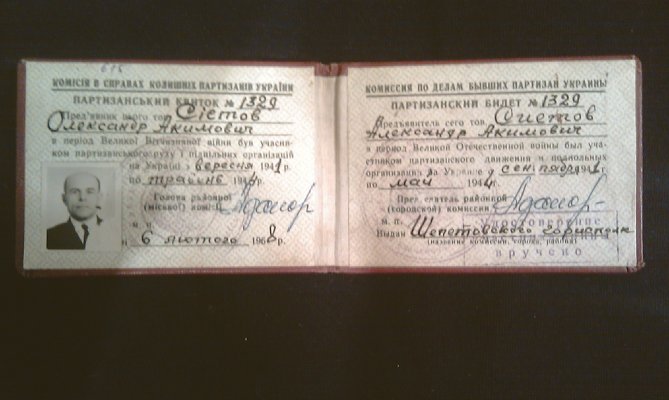 КОМІСІЯ В СПРАВАХ КОЛИШНІХ ПАРТИЗАНІВ УКРАЇНИ
ПАРТИЗАНСЬКИЙ КВИТОК № 1329
Пред'явник цього тов. Сієтов
Олександр Акимович
в період Великої Вітчизняної війни був учасни-
ком партизанського руху і підпільних організацій
на Україні з вересня 1941 р.
по травень 1944 р.
Голова районної
(міської) комісії
м. п.
6 лютого 1968 р.
КОМИССИЯ ПО ДЕЛАМ БЫВШИХ ПАРТИЗАН УКРАИНЫ
ПАРТИЗАНСКИЙ БИЛЕТ № 1329
Предъявитель сего тов. Сиетов
Александр Акимович
в период Великой Отечественной войны был уча-
стником партизанского движения и подпольных
организаций на Украине с сентября 1941 г.
по май 1944 г.
Председатель районной
(городской) комиссии
м. п.
Удостоверение
Выдан Шепетовского
(название комиссии, города, района)
вручено